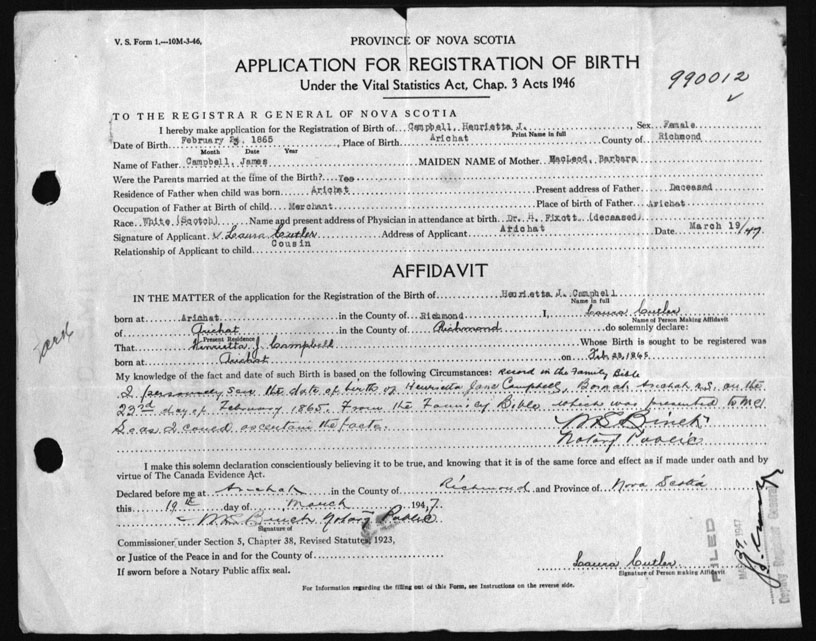 V. S. Form 1.—10M-3-46,
PROVINCE OF NOVA SCOTIA
APPLICATION FOR REGISTRATION OF BIRTH
Under the Vital Statistics Act, Chap. 3 Acts 1946
990012
TO THE REGISTRAR GENERAL OF NOVA SCOTIA
I hereby make application for the Registration of Birth of Campbell, Henrietta J. , Sex Female
Print Name in full
Date of Birth February 23, 1865 , Place of Birth Arichat County of Richmond
Month Date Year
Name of Father Campbell, James MAIDEN NAME of Mother MacLeod, Barbara
Were the Parents married at the time of the Birth? Yes
Residence of Father when child was born Arichat Present address of Father Deceased
Occupation of Father at Birth of child Merchant Place of birth of Father Arichat
Race White (Scotch) Name and present address of Physician in attendance at birth Dr. H. Fixott (deceased)
Signature of Applicant Laura Cutler Address of Applicant Arichat Date March 19/47
Relationship of Applicant to child Cousin
AFFIDAVIT
IN THE MATTER of the application for the Registration of the Birth of Henrietta J. Campbell
Name in full
born at Arichat in the County of Richmond I, Laura Cutler
Name of Person Making Affidavit
of Arichat in the County of Richmond do solemnly declare:
Present Residence
That Henrietta J. Campbell Whose Birth is sought to be registered was
born at Arichat on Feb 23, 1865
My knowledge of the fact and date of such Birth is based on the following Circumstances: record in the Family Bible
I personally saw the date of birth of Henrietta Jane Campbell, Born at Arichat N.S. on the
23rd day of February 1865. From the Family Bible which was presented to me
as I could ascertain the facts.
Notary Public
I make this solemn declaration conscientiously believing it to be true, and knowing that it is of the same force and effect as if made under oath and by
virtue of The Canada Evidence Act.
Declared before me at Arichat in the County of Richmond and Province of Nova Scotia
this 19th day of March 1947.
Notary Public
Signature of
Commissioner under Section 5, Chapter 38, Revised Statutes, 1923,
or Justice of the Peace in and for the County of
If sworn before a Notary Public affix seal.
Laura Cutler
Signature of Person Making Affidavit
For Information regarding the filling out of this Form, see Instructions on the reverse side.
FILED
1947
Deputy Registrar General